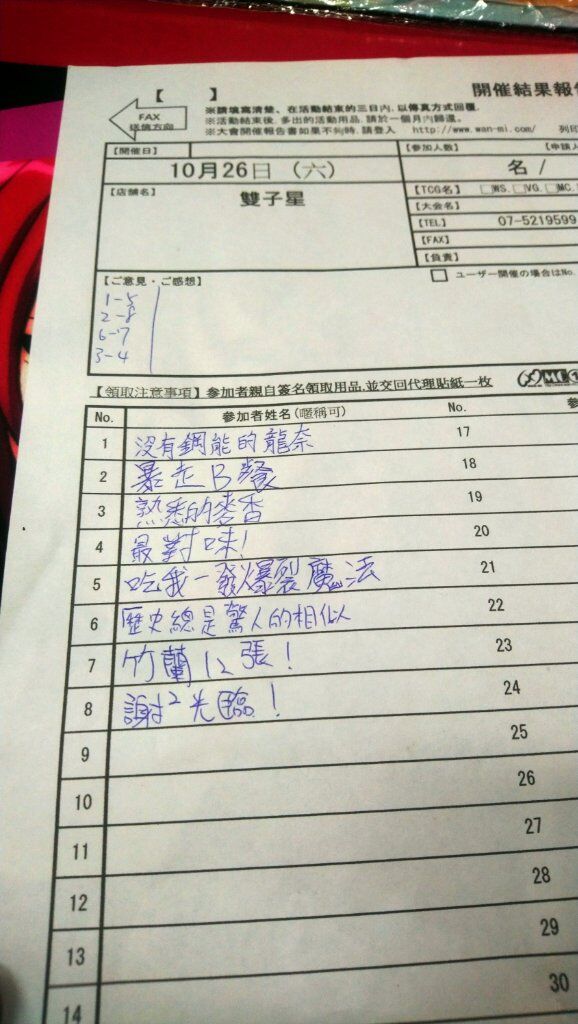 【 】
開催結果報告
FAX
送信方向
※請填寫清楚、在活動結束的三日內,以傳真方式回覆.
※活動結束後,多出的活動用品,請於一個月內歸還。
※大會開催報告書如果不夠時,請登入 http://www.wan-mi.com/ 列印
【開催日】
10月26日 (六)
【参加人数】
【申請人
名 /
【店舗名】
雙子星
【TCG名】 □WS. □VG. □MC.
【大会名】
【TEL】 07-5219599
【FAX】
【負責】
□ ユーザー開催の場合はNo.
【ご意見・ご感想】
1-5
2-8
6-7
3-4
【領取注意事項】参加者親自簽名領取用品,並交回代理貼紙一枚
No. 参加者姓名(暱稱可) No. 参
1 沒有鋼能的龍奈 17
2 暴走B餐 18
3 熟悉的麥香 19
4 最對味! 20
5 吃我一發爆裂魔法 21
6 歷史總是驚人的相似 22
7 竹蘭12張! 23
8 謝²光臨! 24
9 25
10 26
11 27
12 28
13 29
14 30